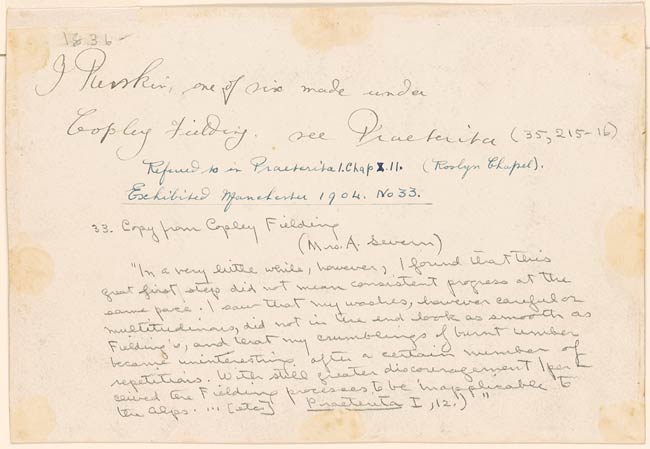 1836
J Ruskin, one of six made under
Copley Fielding. see Praeterita (35, 215-16)
Refered to in Praeterita 1. Chap X. 11. (Roslyn Chapel).
Exhibited Manchester 1904. No 33.
33. Copy from Copley Fielding
(Mrs. A. Severn)
"In a very little while, however, I found that this
great first step did not mean consistent progress at the
same pace. I saw that my washes, however careful or
multitudinous, did not in the end look as smooth as
Fielding's, and that my crumblings of burnt umber
became uninteresting after a certain number of
repetitions. With still greater discouragement I per
ceived the Fielding processes to be inapplicable to
the Alps. ... [etc] Praeterita I, 12.) "